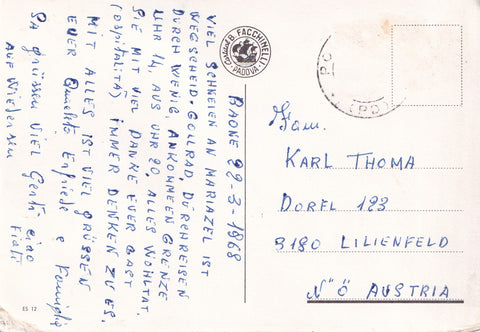 BAONE 22-3-1968
VIEL SCHNEIEN AN MARIAZEL IST
WEGSCHEID-GOLLRAD, DURCHREISEN
DURCH WENIG, ANKOMMEN GRENZE
UHR 14, AUS UHR 20, ALLES WOHLTAT,
SIE MIT VIEL DANKE EUER GAST
(OSPITALITÀ) IMMER DENKEN ZU ES.
MIT ALLES IST VIEL GRÜSSEN
EUER Qualità Elfriede e Famiglia
SA grüssen VIEL Gerti, ciao
AUF WIEDERSEN
ES 12
EDIZIONI B. FACCHINELLI
PADOVA
(PD)
Fam.
KARL THOMA
DORFL 123
3180 LILIENFELD
N"Ö AUSTRIA